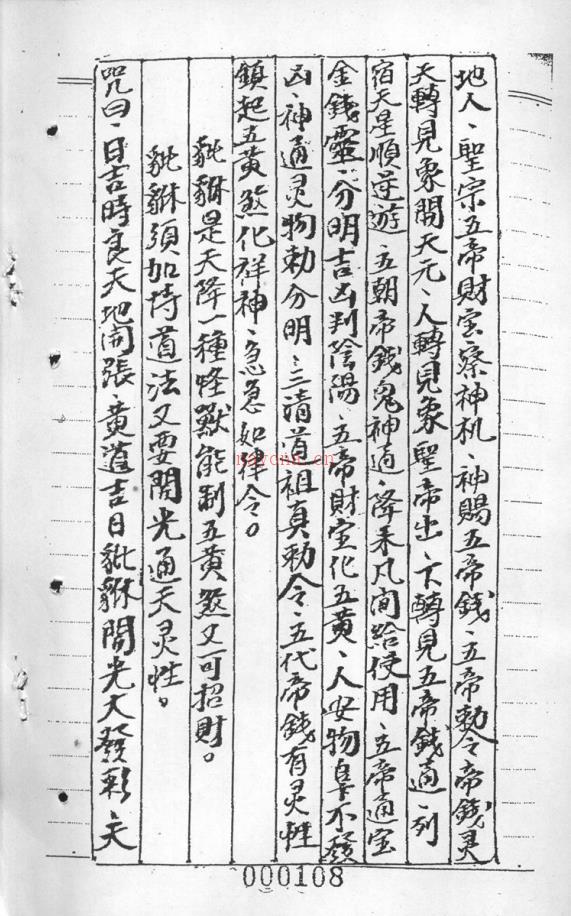 地人、聖宗五帝財宝察神机、神賜五帝錢、五帝勅令帝錢灵
天轉見象開天元、人轉見象聖帝出、下轉見五帝錢通、列
宿天星順逆遊、五朝帝錢鬼神通、降來凡间給使用、五帝通宝
金錢靈、分明吉凶判陰陽、五帝財宝化五黄、人安物阜不發
凶、神通灵物勅分明、三清道祖真勅令、五代帝錢有灵性
鎖起五黄煞化祥神、急急如律令。
貔貅是天降一種怪獸能制五黄煞又可招財。
貔貅須加持道法又要開光通天灵性。
咒曰、日吉時良天地開張、黄道吉日貔貅開光大發彩、天
nayona.cn
000108